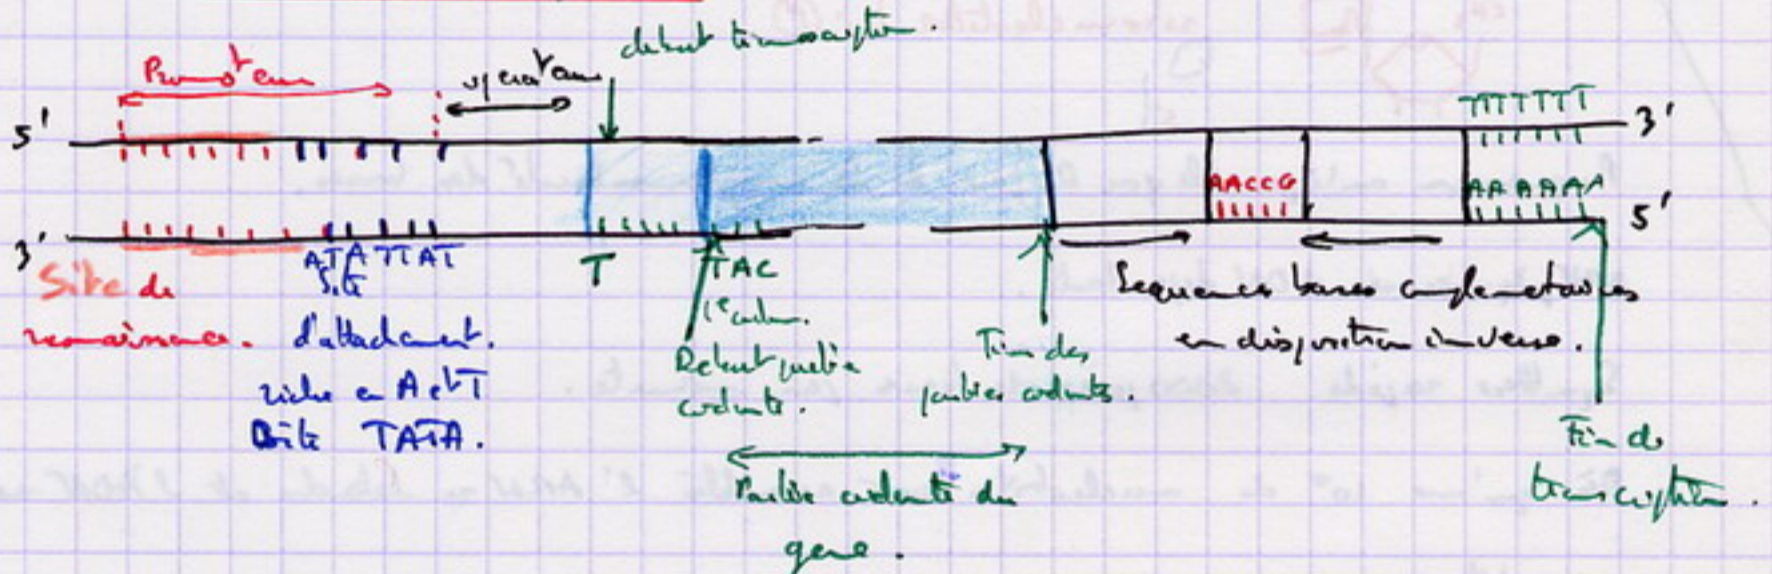 début transcription.
Promoteur
opérateur
TTTTTTT
5'
3'
AACCG
AAAAAA
3'
5'
ATATTAT
T
TAC
Site de
reconnaissance.
Site
d'attachement.
riche en A et T
Boite TATA.
1e codon.
Debut partie
codante.
Fin des
parties codantes.
Sequences bases complementaires
en disposition inverse.
Fin de
transcription.
Partie codante du
gene.